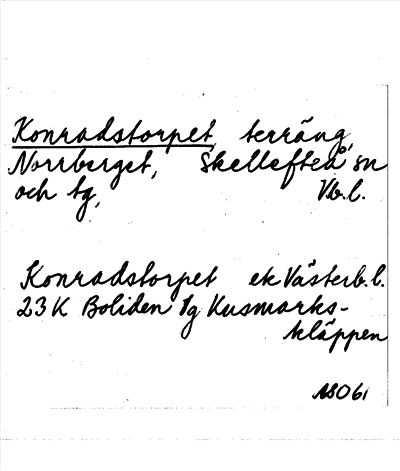 Konradstorpet, terräng,
Norrberget, Skellefteå sn
och tg, Vb.l.
Konradstorpet ek Västerb.l.
23K Boliden 1g Kusmarks-
kläppen
ASO61